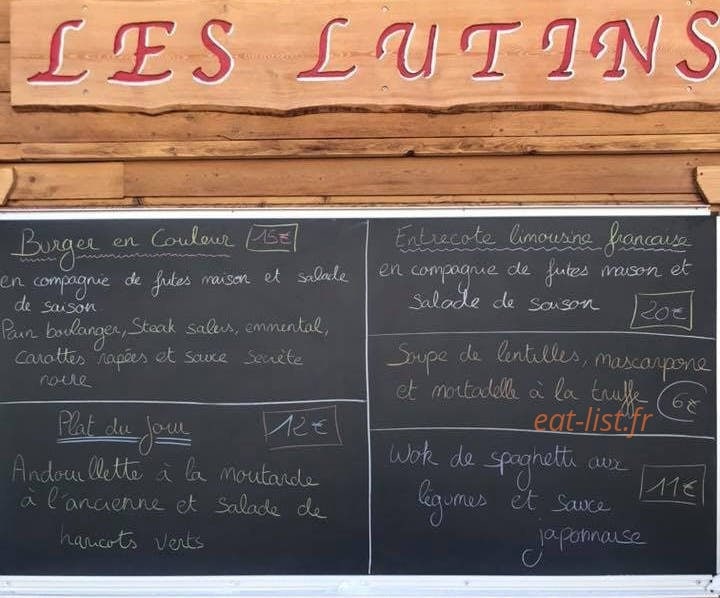 LES LUTINS
Burger en Couleur 15€
en compagnie de frites maison et salade
de saison.
Pain boulanger, Steak salers, emmental,
carottes rapées et sauce secrète
noire
Plat du jour 12€
Andouillette à la moutarde
à l'ancienne et salade de
haricots verts
Entrecote limousine francaise
en compagnie de frites maison et
salade de saison 20€
Soupe de lentilles, mascarpone
et mortadelle à la truffe 6€
eat-list.fr
Wok de spaghetti aux
légumes et sauce 11€
japonnaise